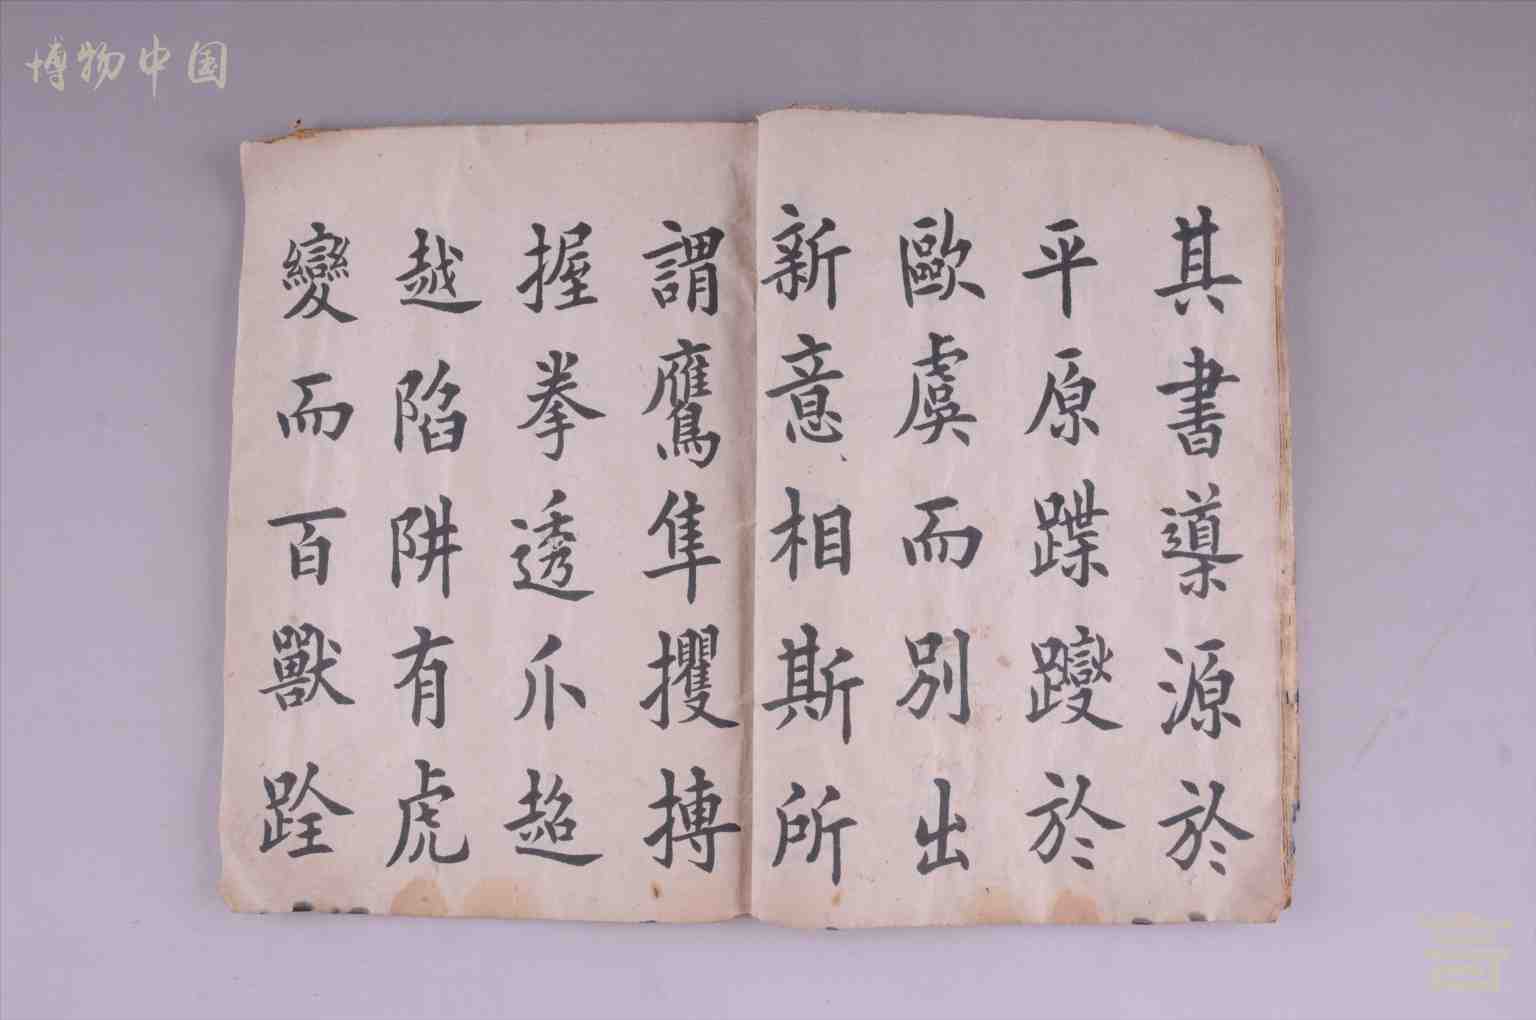 博物中国
其書導源於
平原蹀躞於
歐虞而別出
新意相斯所
謂鷹隼攫搏
握拳透爪超
越陷阱有虎
變而百獸跧